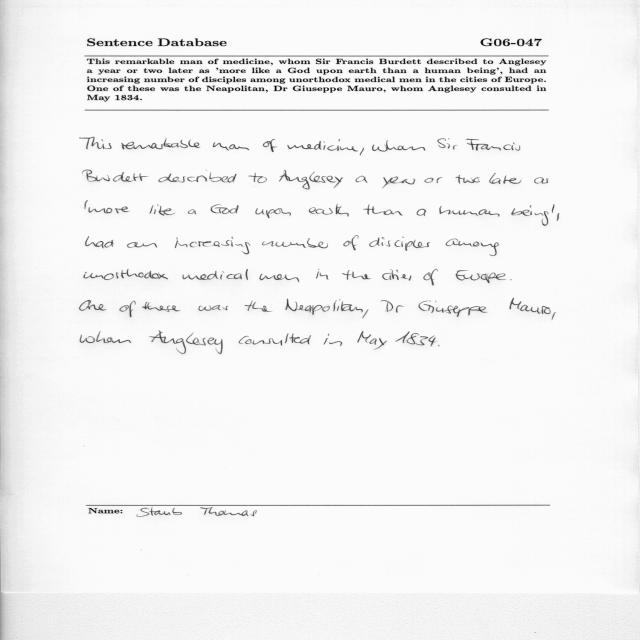 Sentence Database G06-047
This remarkable man of medicine, whom Sir Francis Burdett described to Anglesey
a year or two later as 'more like a God upon earth than a human being', had an
increasing number of disciples among unorthodox medical men in the cities of Europe.
One of these was the Neapolitan, Dr Giuseppe Mauro, whom Anglesey consulted in
May 1834.
This remarkable man of medicine, whom Sir Francis
Burdett described to Anglesey a year or two late as
'more like a God upon earth than a human being',
had an increasing number of disciples among
unorthodox medical men in the cities of Europe.
One of these was the Neapolitan, Dr Giuseppe Mauro,
whom Anglesey consulted in May 1834.
Name: Staub Thomas